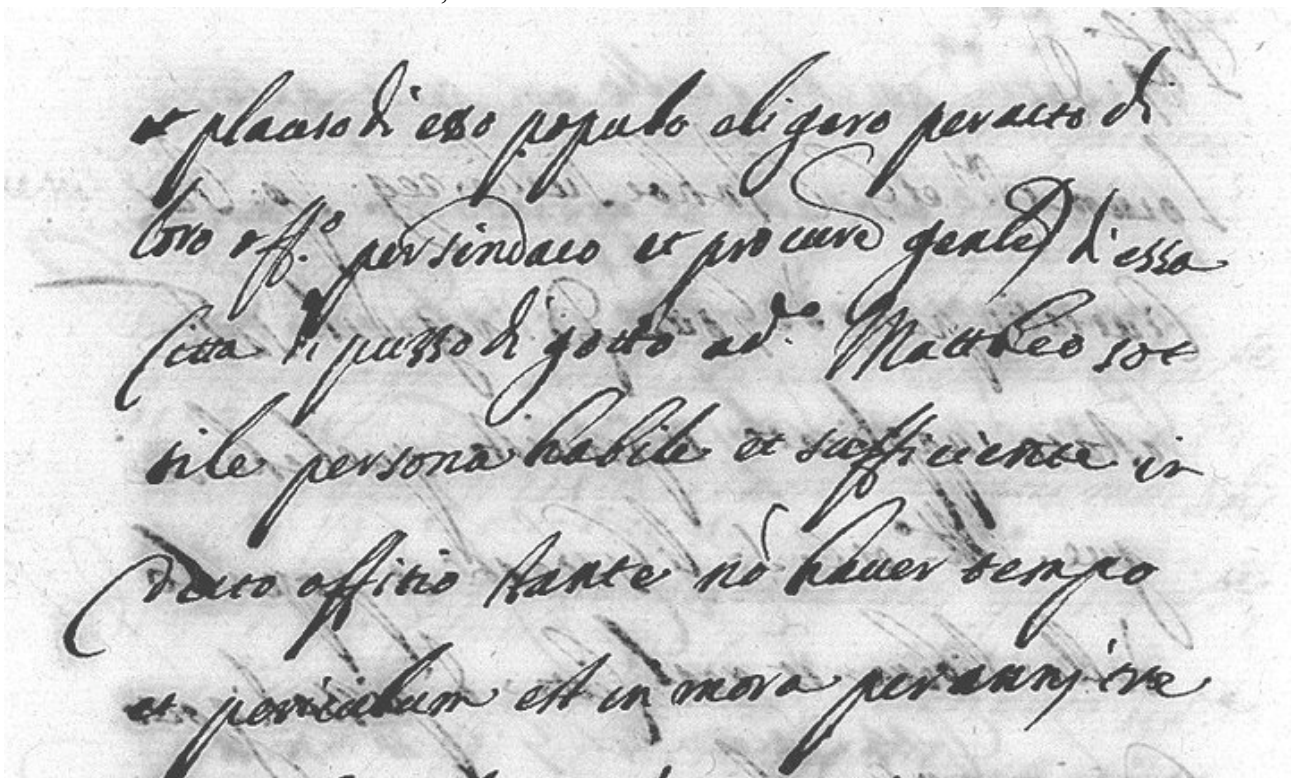 et plauso di esso populo eligero per atto di
loro off.o per sindaco et procure genle d'essa
Citta di puzzo di gotto ad.o Mattheo sot
tile persona habile et sufficiente in
detto offitio stante nō haver tempo
et periculum est in mora per annj tre